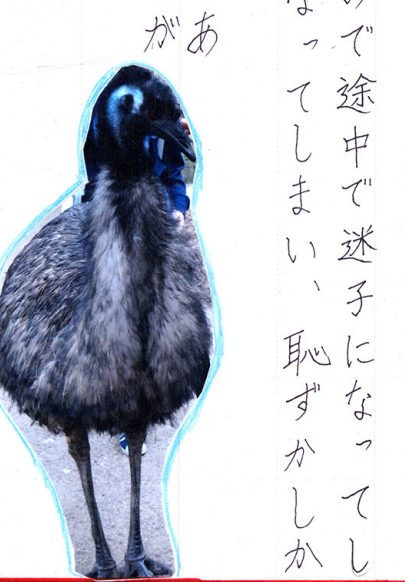 で途中で迷子になってし
なってしまい、恥ずかしか
あ
が